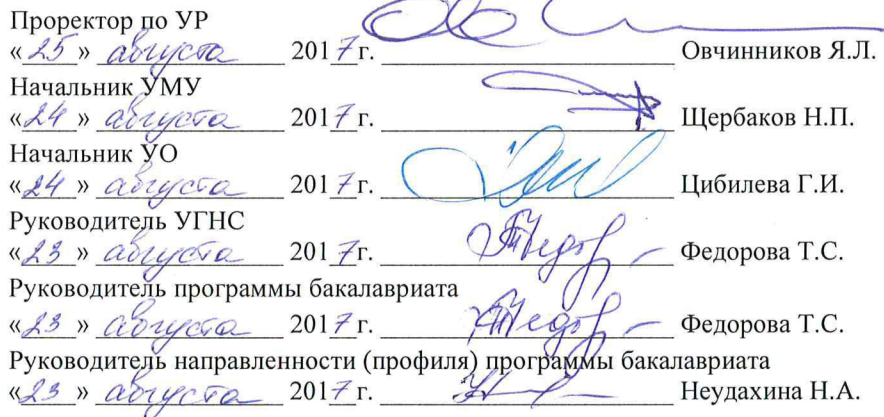 Проректор по УР
«25» августа 2017г. Овчинников Я.Л.
Начальник УМУ
«24» августа 2017г. Щербаков Н.П.
Начальник УО
«24» августа 2017г. Цибилева Г.И.
Руководитель УГНС
«23» августа 2017г. Федорова Т.С.
Руководитель программы бакалавриата
«23» августа 2017г. Федорова Т.С.
Руководитель направленности (профиля) программы бакалавриата
«23» августа 2017г. Неудахина Н.А.